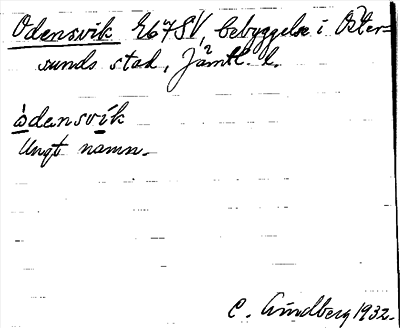 Odensvik E67SV, bebyggelse i Öster-
sunds stad, Jämtl. l.
òdensvík
Ungt namn.
C. Lindberg 1932.